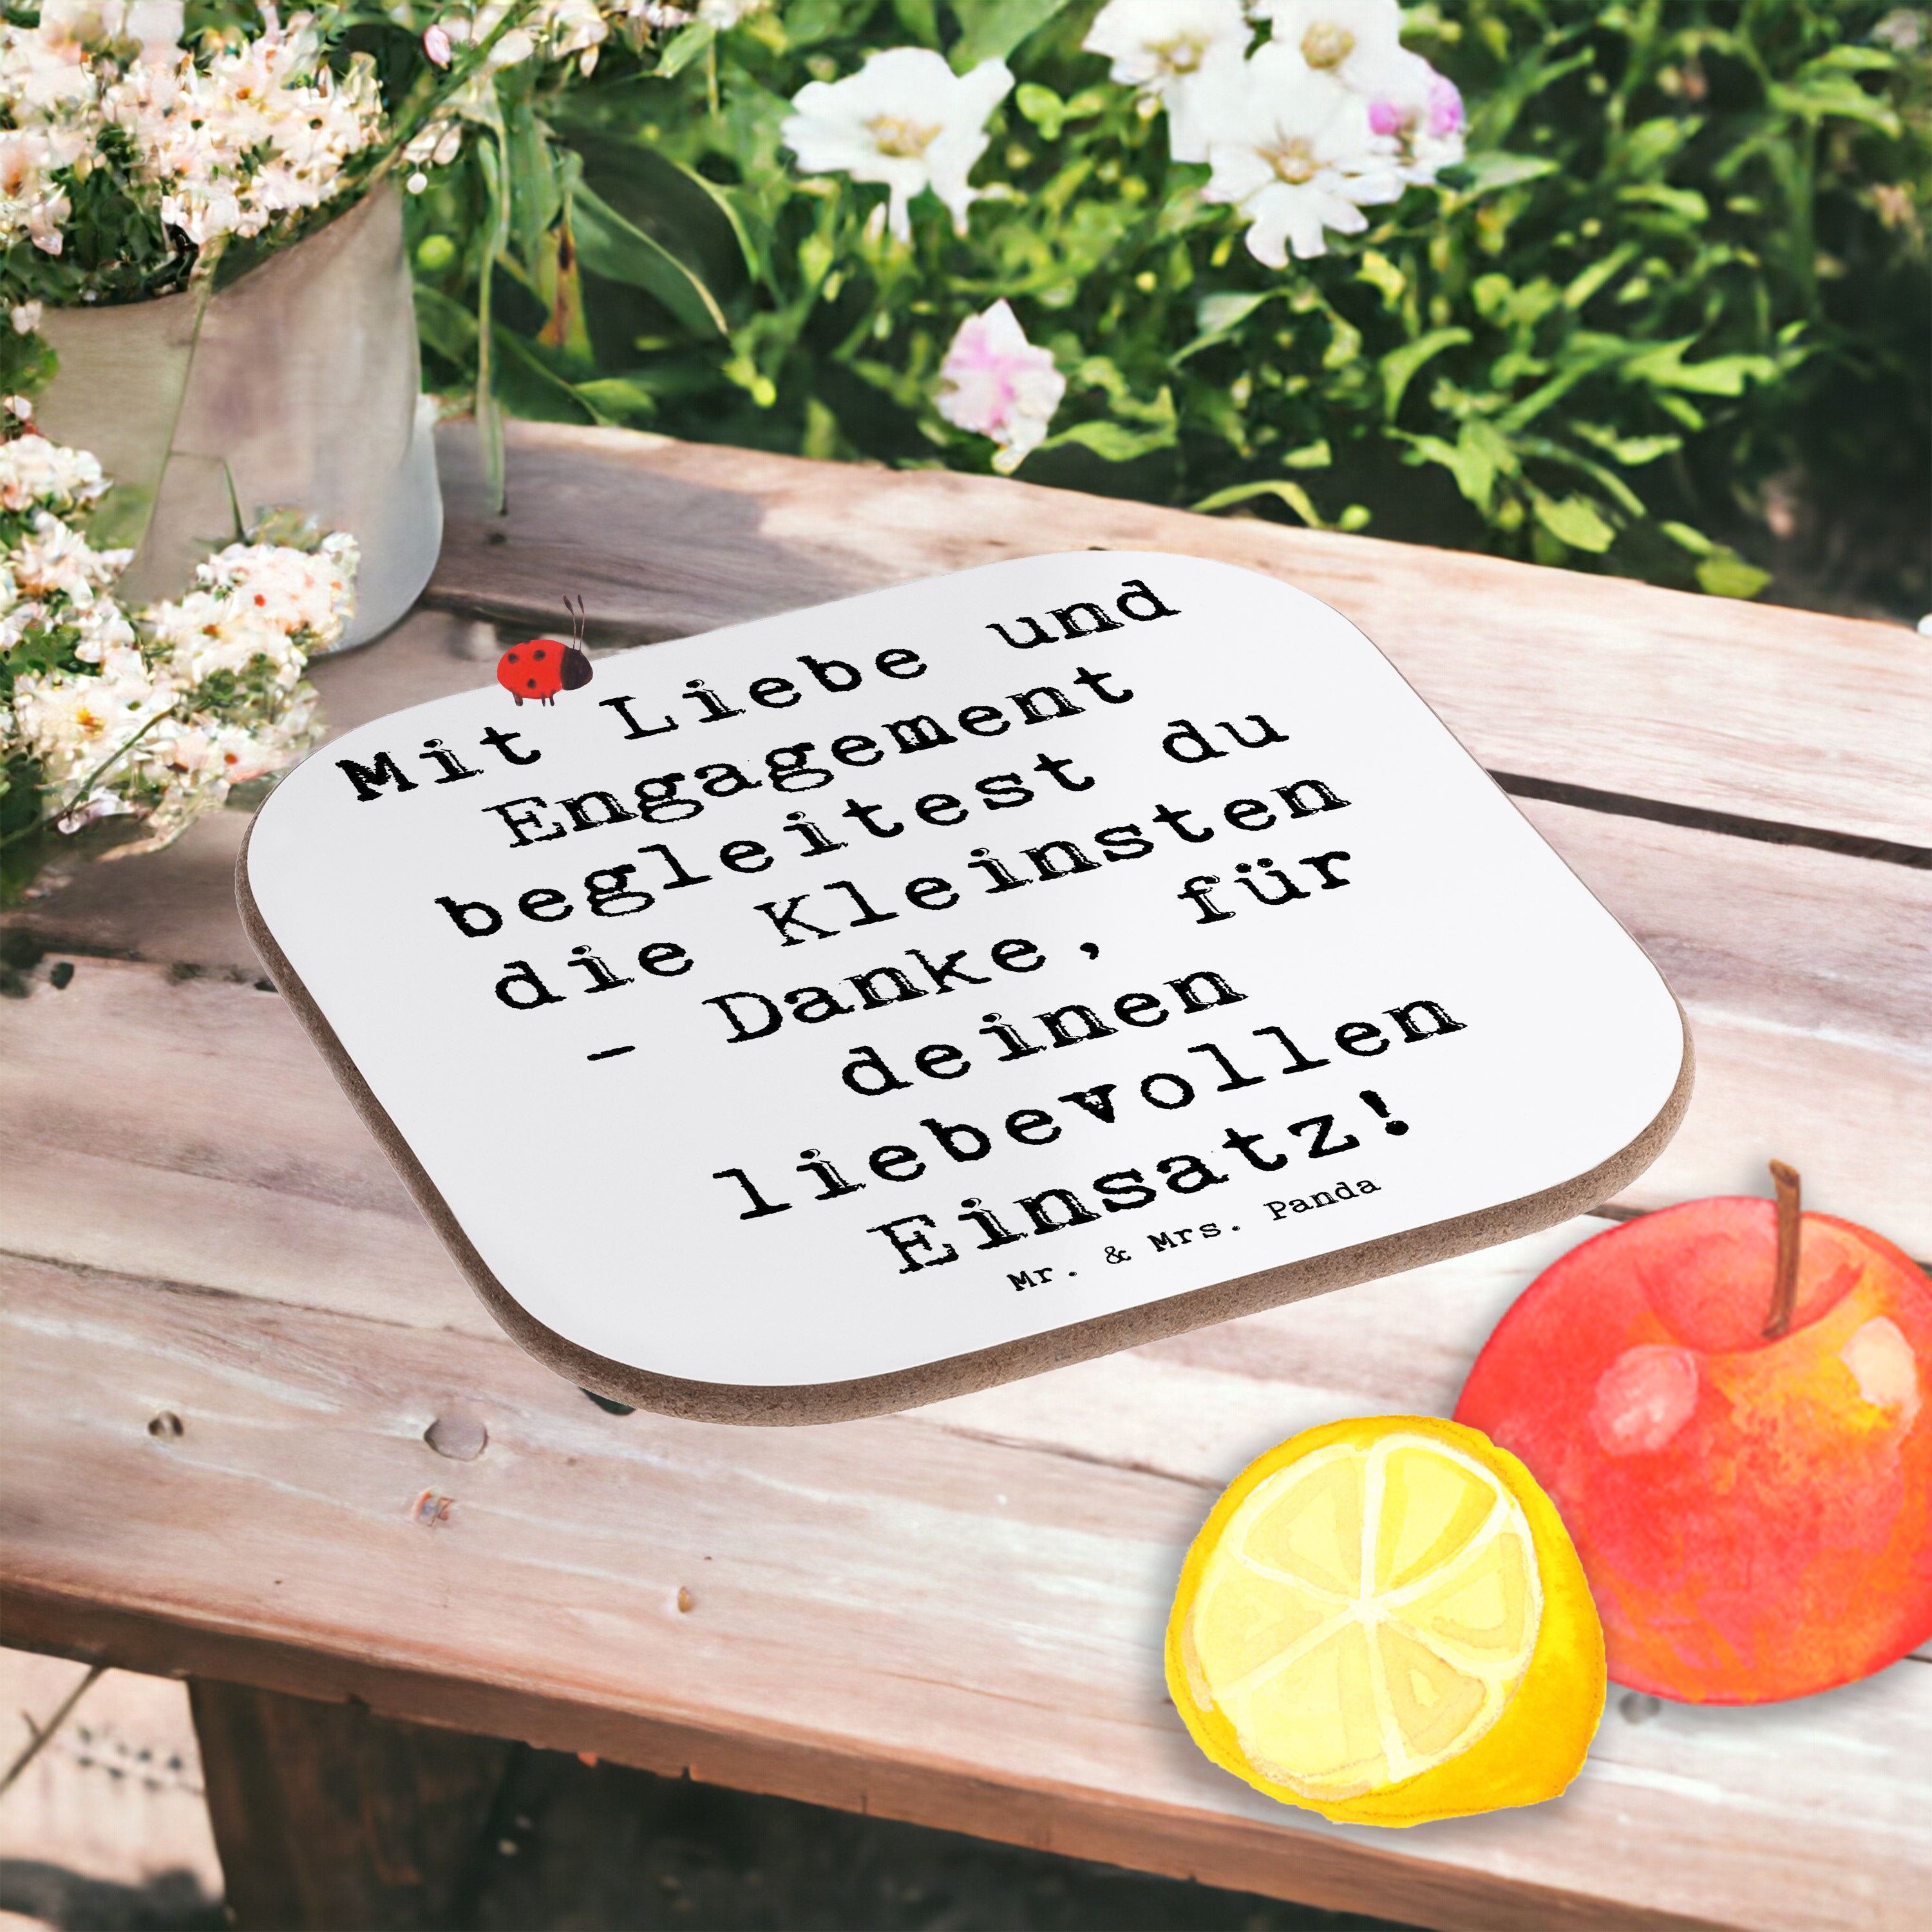 Mit Liebe und
Engagement
begleitest du
die Kleinsten
- Danke, für
deinen
liebevollen
Einsatz!
Mr. & Mrs. Panda